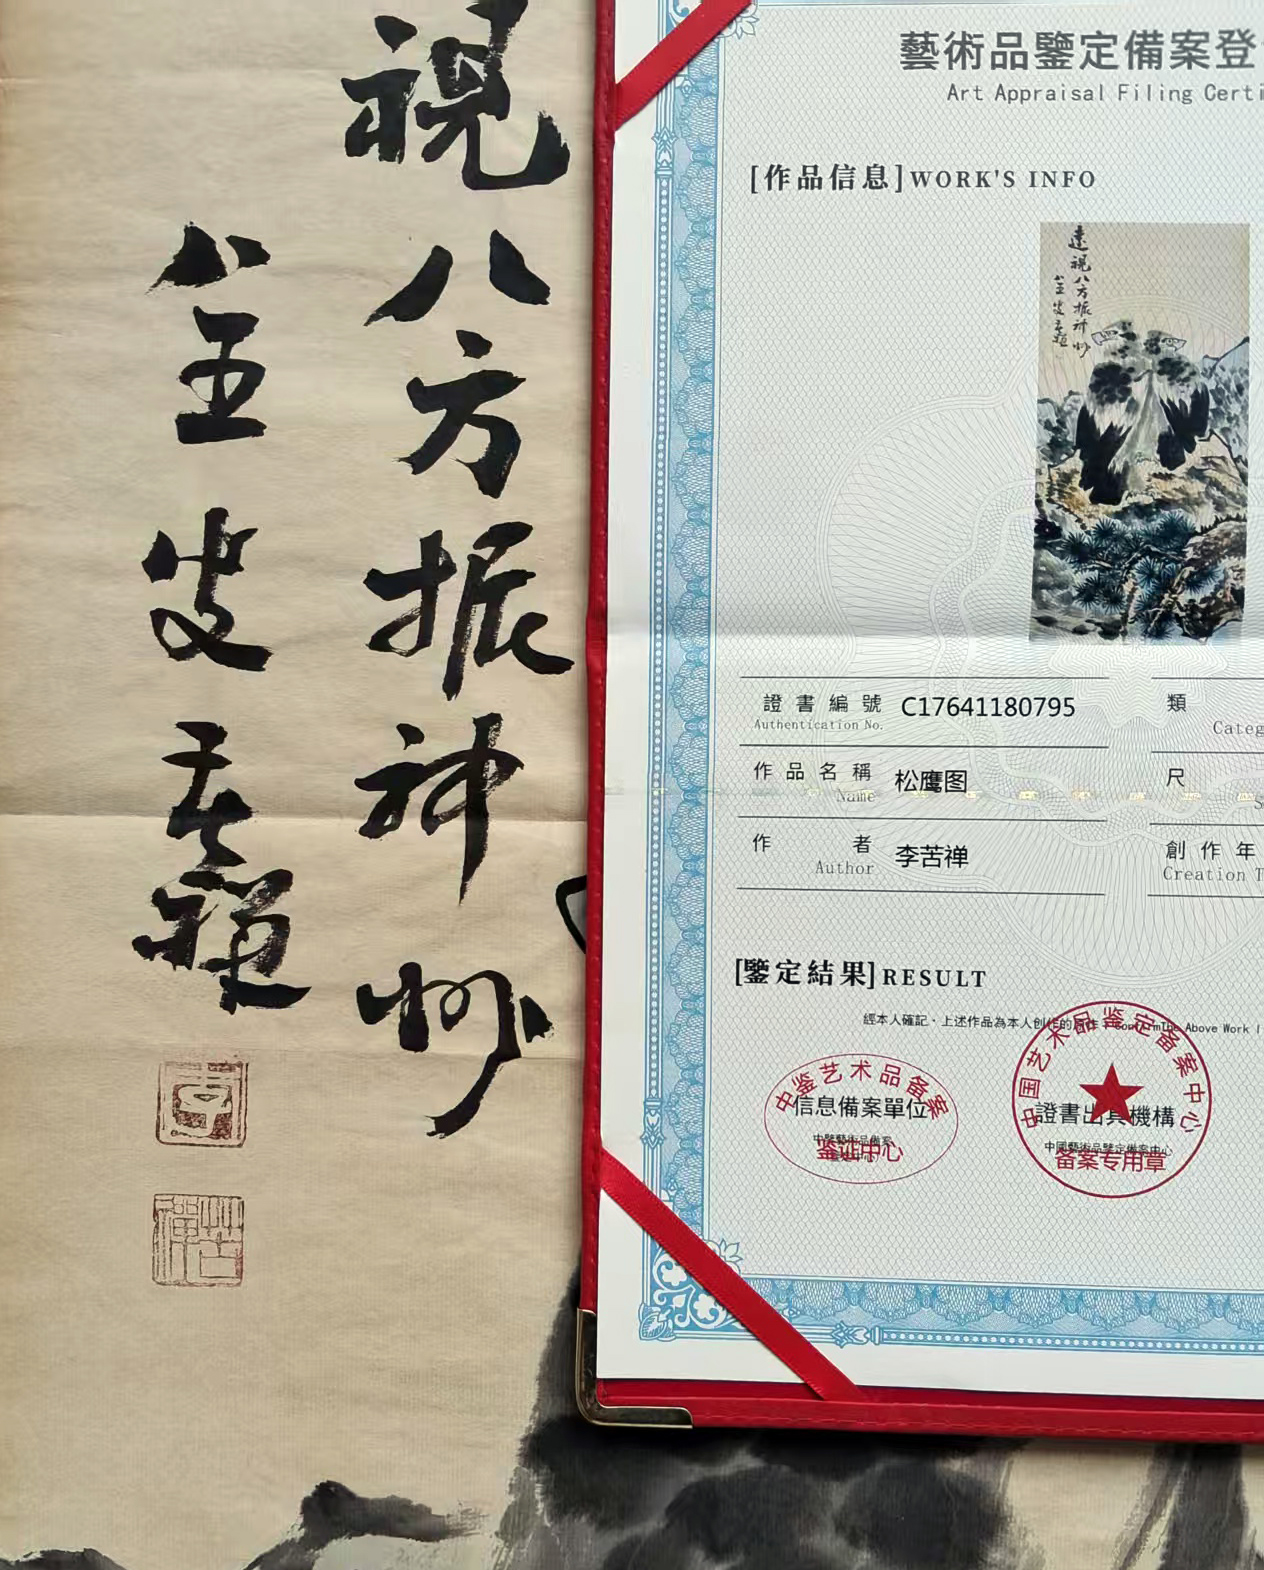 視八方振神州
八五叟苦禪
藝術品鑒定備案登
Art Appraisal Filing Certi
[作品信息]WORK'S INFO
遠視八方振神州
八五叟苦禪
證書編號 C17641180795
Authentication No.
類
Categ
作品名稱 松鹰图
Name
尺
S
作者 李苦禅
Author
創作年
Creation T
[鑒定結果]RESULT
經本人確記·上述作品為本人创作的
The Above Work I
中鉴艺术品备案
信息備案單位
鉴证中心
中国艺术品鉴定备案中心
證書出具機構
中國藝術品鑒定備案中心
备案专用章
苦禪